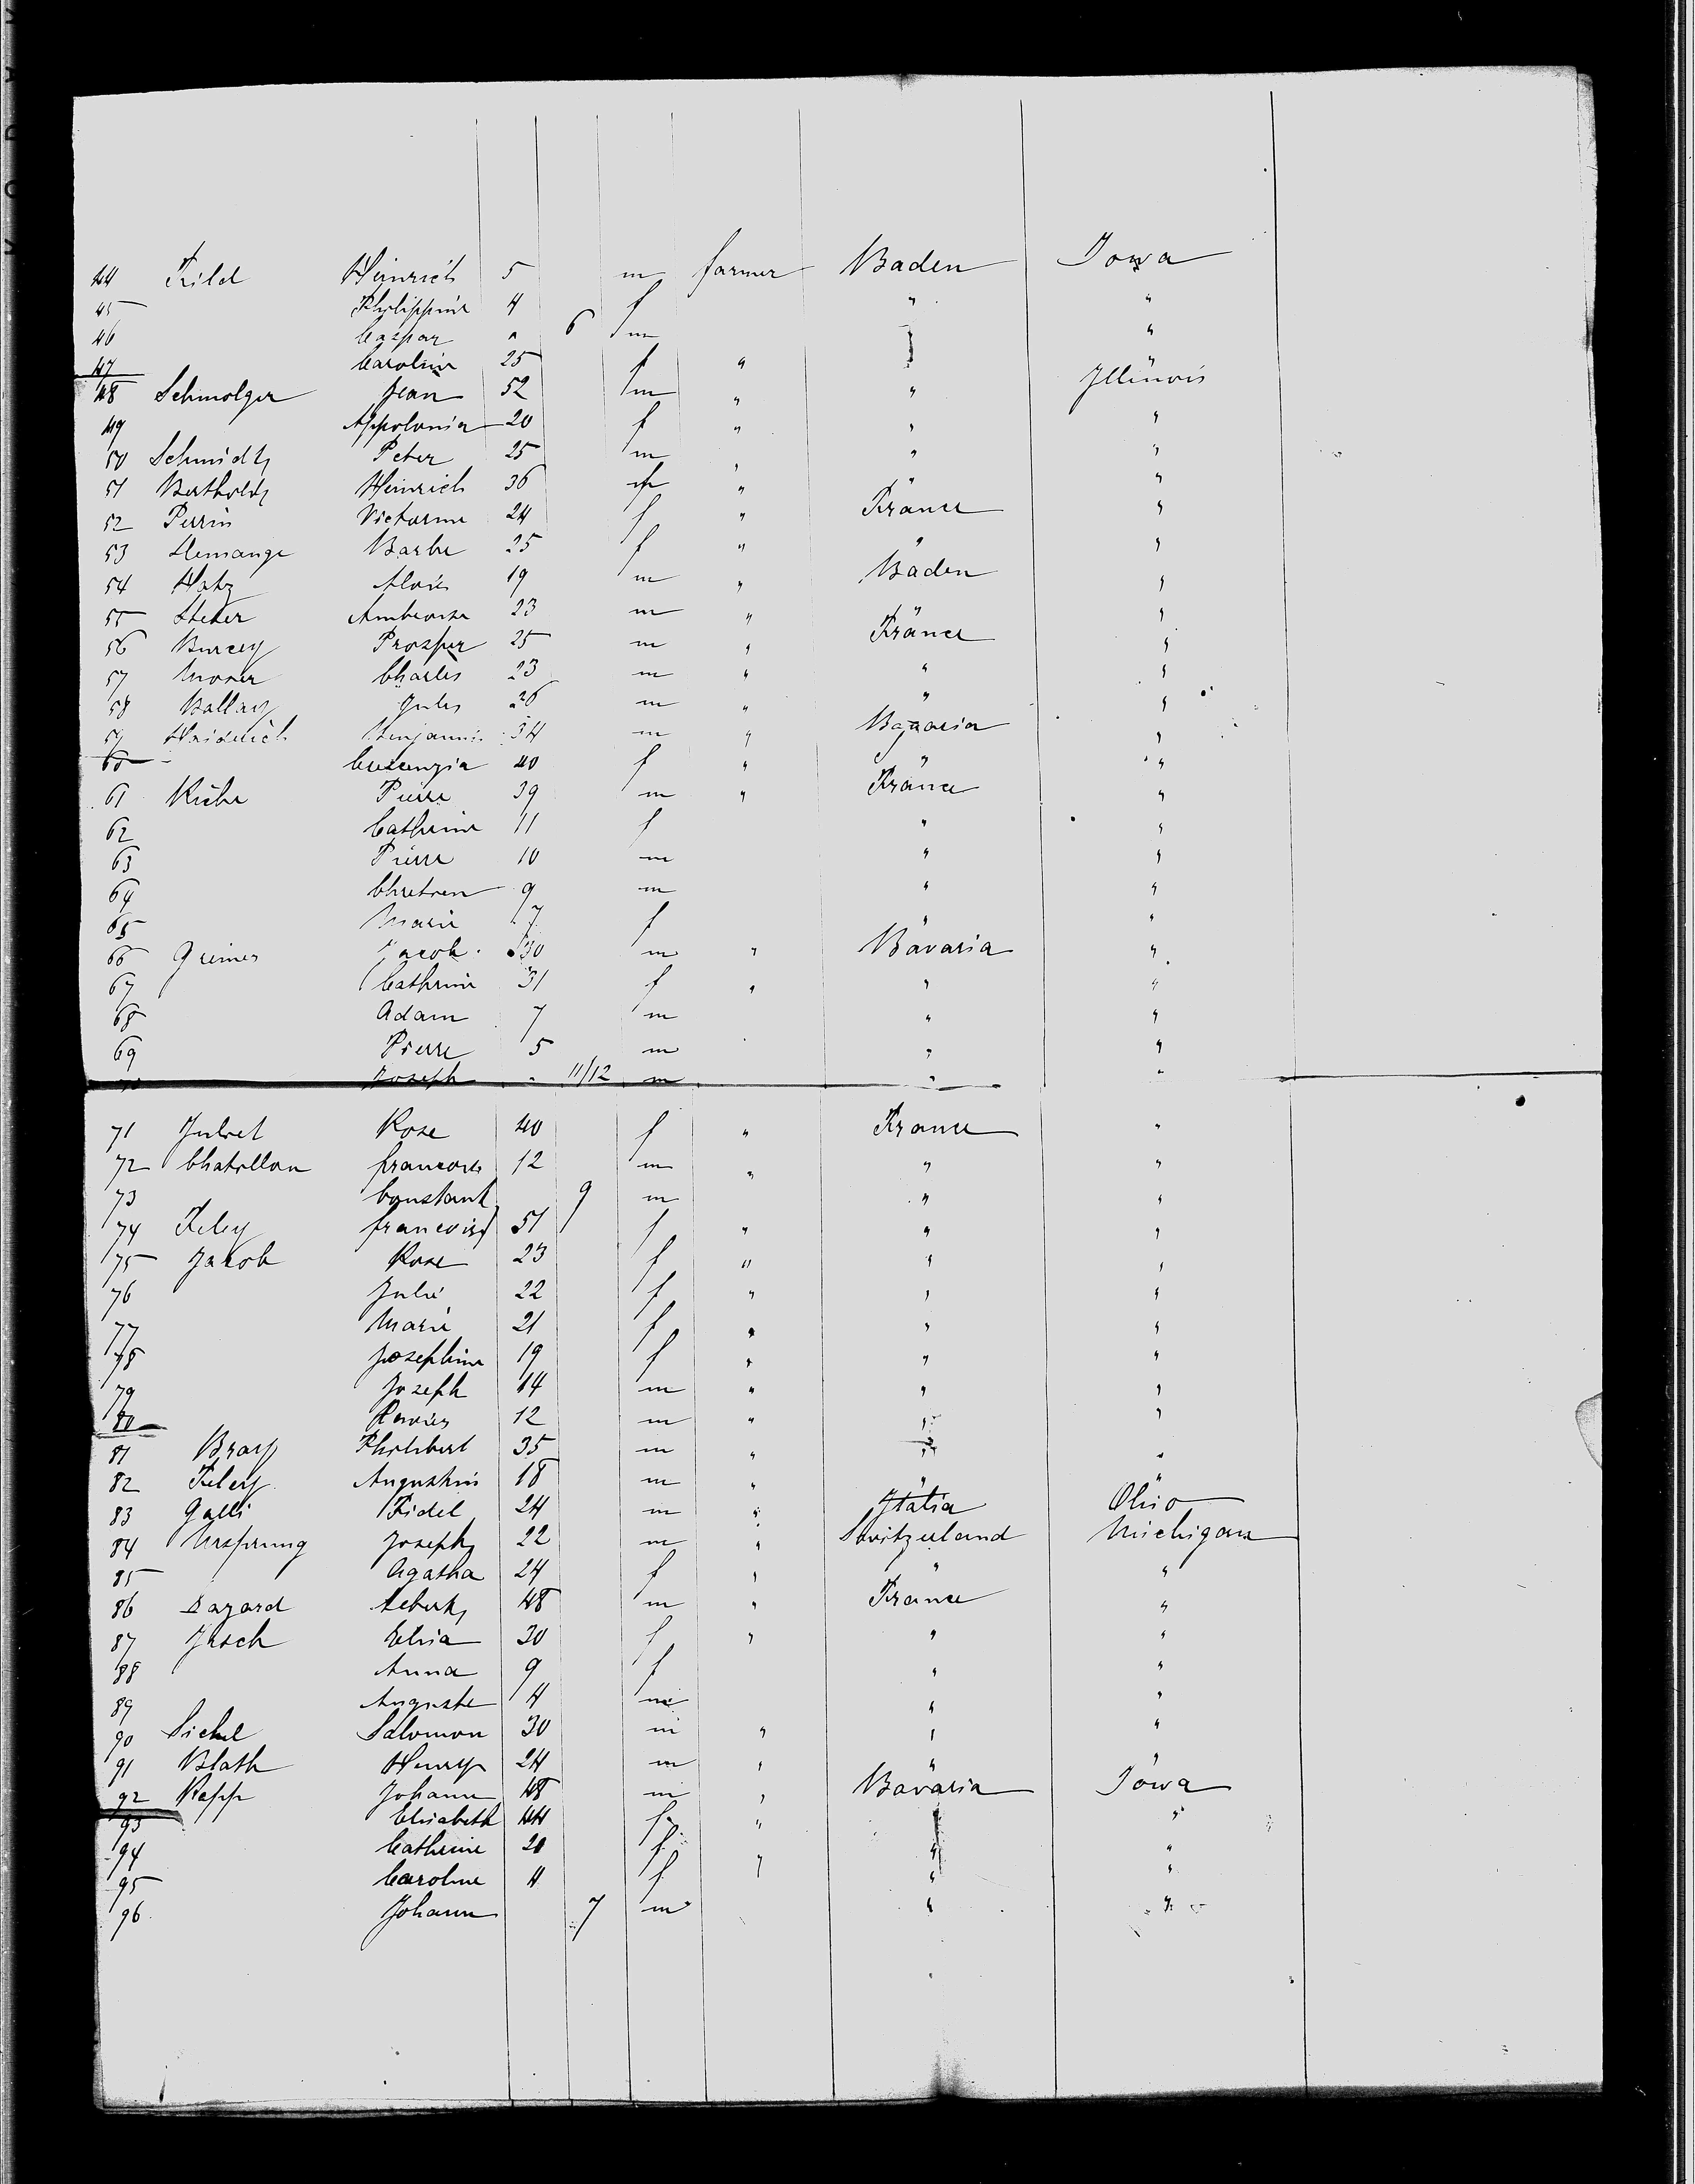 44 Fild Heinrich 5 m farmer Baden Iowa
45 Philippine 4 f " "
46 Caspar " 6 m " "
47 Caroline 25 f " "
48 Schmolger Jean 52 m " " Illinois
49 Appolonia 20 f " " "
50 Schmidt Peter 25 m " " "
51 Berthold Heinrich 36 m " " "
52 Perrin Victorine 24 f " France "
53 Demange Barbe 25 f " " "
54 Hatz Alois 19 m " Baden "
55 Steter Ambroise 23 m " " "
56 Burcey Prosper 25 m " France "
57 Moser Charles 23 m " " "
58 Ballay Jules 26 m " " "
59 Benjamin 34 m " Bavaria "
60 Crescenzia 40 f " " "
61 Riche Pierre 39 m " France "
62 Catherine 11 f " "
63 Pierre 10 m " "
64 Chretien 9 m " "
65 Marie 7 f " "
66 Greiner Jacob 30 m " Bavaria "
67 Cathrine 31 f " " "
68 Adam 7 m " "
69 Pierre 5 m " "
70 Joseph " 11/12 m " "
71 Rose 40 f " France "
72 Chatillon francois 12 m " " "
73 Constant 9 m " "
74 51 f " " "
75 Jacob Rose 23 f " " "
76 Julie 22 f " " "
77 Marie 21 f " " "
78 Josephine 19 f " " "
79 Joseph 14 m " " "
80 12 m " " "
81 Bray Philibert 35 m " " "
82 Augustin 18 m " " "
83 Galli Fidel 24 m " Italia Ohio
84 Ursprung Joseph 22 m " Switzerland Michigan
85 Agatha 24 f " " "
86 Lazard 48 m " France "
87 Elisa 30 f " " "
88 Anna 9 f " "
89 Auguste 4 m " "
90 Sichel Salomon 30 m " " "
91 Blath Henry 24 m " " "
92 Kepp Johann 48 m " Bavaria Iowa
93 Elisabeth 44 f " "
94 Catherine 20 f " " "
95 Caroline 4 f " "
96 Johann 7 m " "